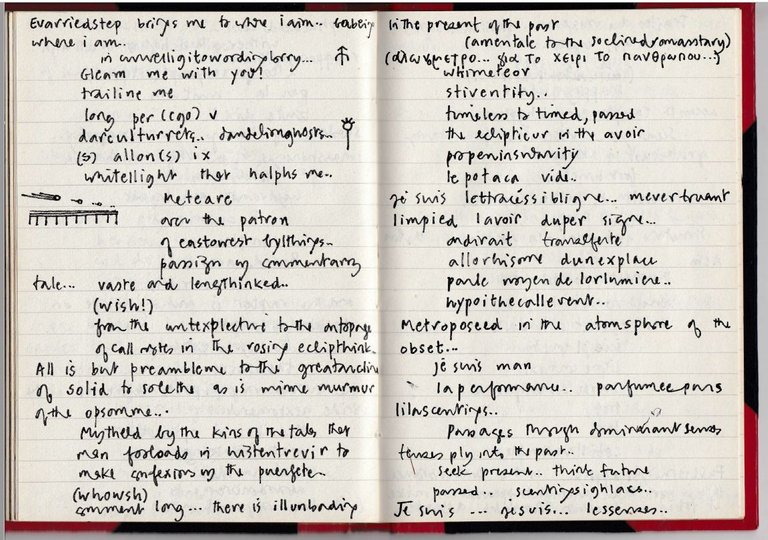 Evarriedstep brings me to where i aim..
where i am..
Gleam me with you!
trailine me
long per (ego) v
darculturrets.. dandelionghosts..
(s) allon(s) i x
whitellight that halphs me..
Meteare
over the patron
of eastowest bylthings..
passign my commentarry
tale... vaste and lengthinked..
(wish!)
from the untexplective to the
of call notes in the rosiny eclipthink
All is but preambleme to the
of solid to as is mime murmur
of the opsomme...
Mytheld by the kins of the tales that
man forloads in histentrevir to
make confexions of the puerfete..
(whowsh)
comment long... there is illunbading
in the present of the past
(amentale to the
(αλλαχμετρο... για το χειρι το πανθρωπου...)
whimeteor
stiventity..
timeless to timed, passed
the eclipticur in the avoir
le potaca vide..
je suis lettracéssibligne... mevertruant
limpied lavoir duper signe..
ondirait transferte
allorhisore dunexplace
parle moyen de lorlumiere..
hypoithecallevent..
Metroposeed in the atomsphere of the
obset...
je suis man
la performance.. parfumee pans
lilascentings..
Passages through dominant senses
tenses ply into the past..
seek present.. think future
passed.. scentingsighlacs..
Je suis ... jesuis... lessenses..